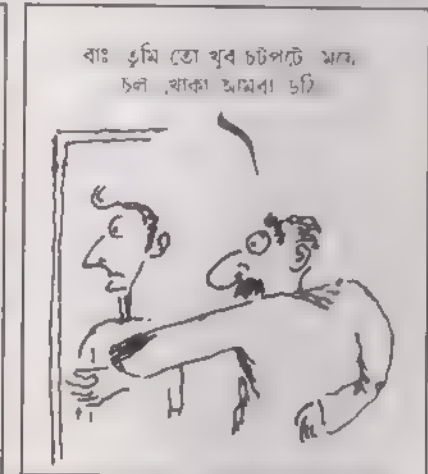 বাঃ তুমি তো খুব চটপটে
চল খোকা আমরা